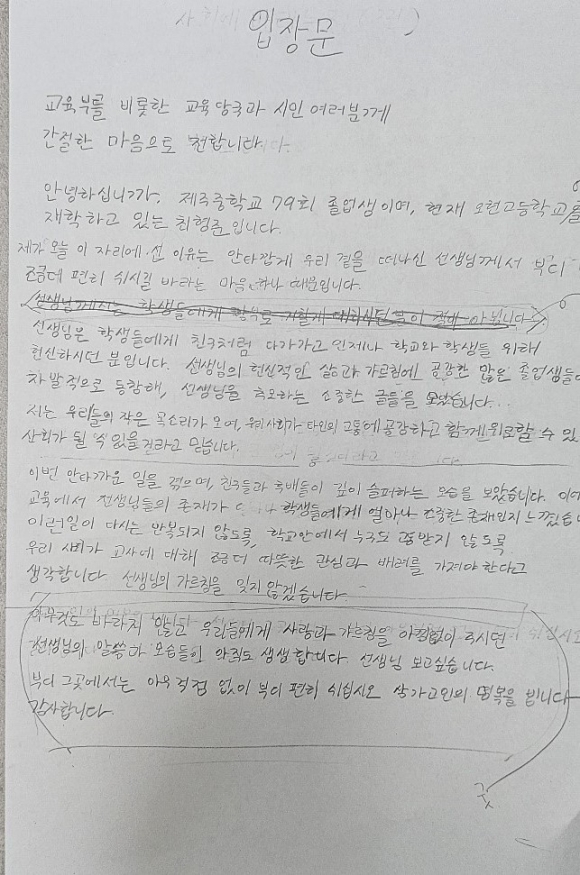 입장문
교육부를 비롯한 교육 당국과 시민 여러분께
간절한 마음으로 전합니다.
안녕하십니까. 제주중학교 79회 졸업생이며, 현재 오현고등학교를
재학하고 있는 최형준입니다.
제가 오늘 이 자리에 선 이유는 안타깝게 우리 곁을 떠나신 선생님께서 부디
조금더 편히 쉬시길 바라는 마음 하나 때문입니다.
선생님께서는 학생들에게
선생님은 학생들에게 친구처럼 다가가고 언제나 학교와 학생들 위해
헌신하시던 분입니다. 선생님의 헌신적인 삶과 가르침에 공감한 많은 졸업생들이
자발적으로 동참해, 선생님을 추모하는 소중한 글들을 모았습니다.
저는 우리들의 작은 목소리가 모여, 우리사회가 타인의 고통에 공감하고 함께 위로할 수 있
사회가 될 수 있을 거라고 믿습니다.
이번 안타까운 일을 겪으며, 친구들과 후배들이 깊이 슬퍼하는 모습을 보았습니다.
교육에서 선생님들의 존재가 학생들에게 얼마나 소중한 존재인지 느꼈습니
이런일이 다시는 반복되지 않도록, 학교안에서 누구도 고통받지 않도록
우리 사회가 교사에 대해 조금더 따뜻한 관심과 배려를 가져야 한다고
생각합니다. 선생님의 가르침을 잊지 않겠습니다.
아무것도 바라지 않고 우리들에게 사랑과 가르침을 아낌없이 주시던
선생님의 말씀과 모습들이 아직도 생생합니다. 선생님 보고싶습니다.
부디 그곳에서는 아무 걱정 없이 부디 편히 쉬십시오. 삼가고인의 명복을 빕니다
감사합니다.
끝